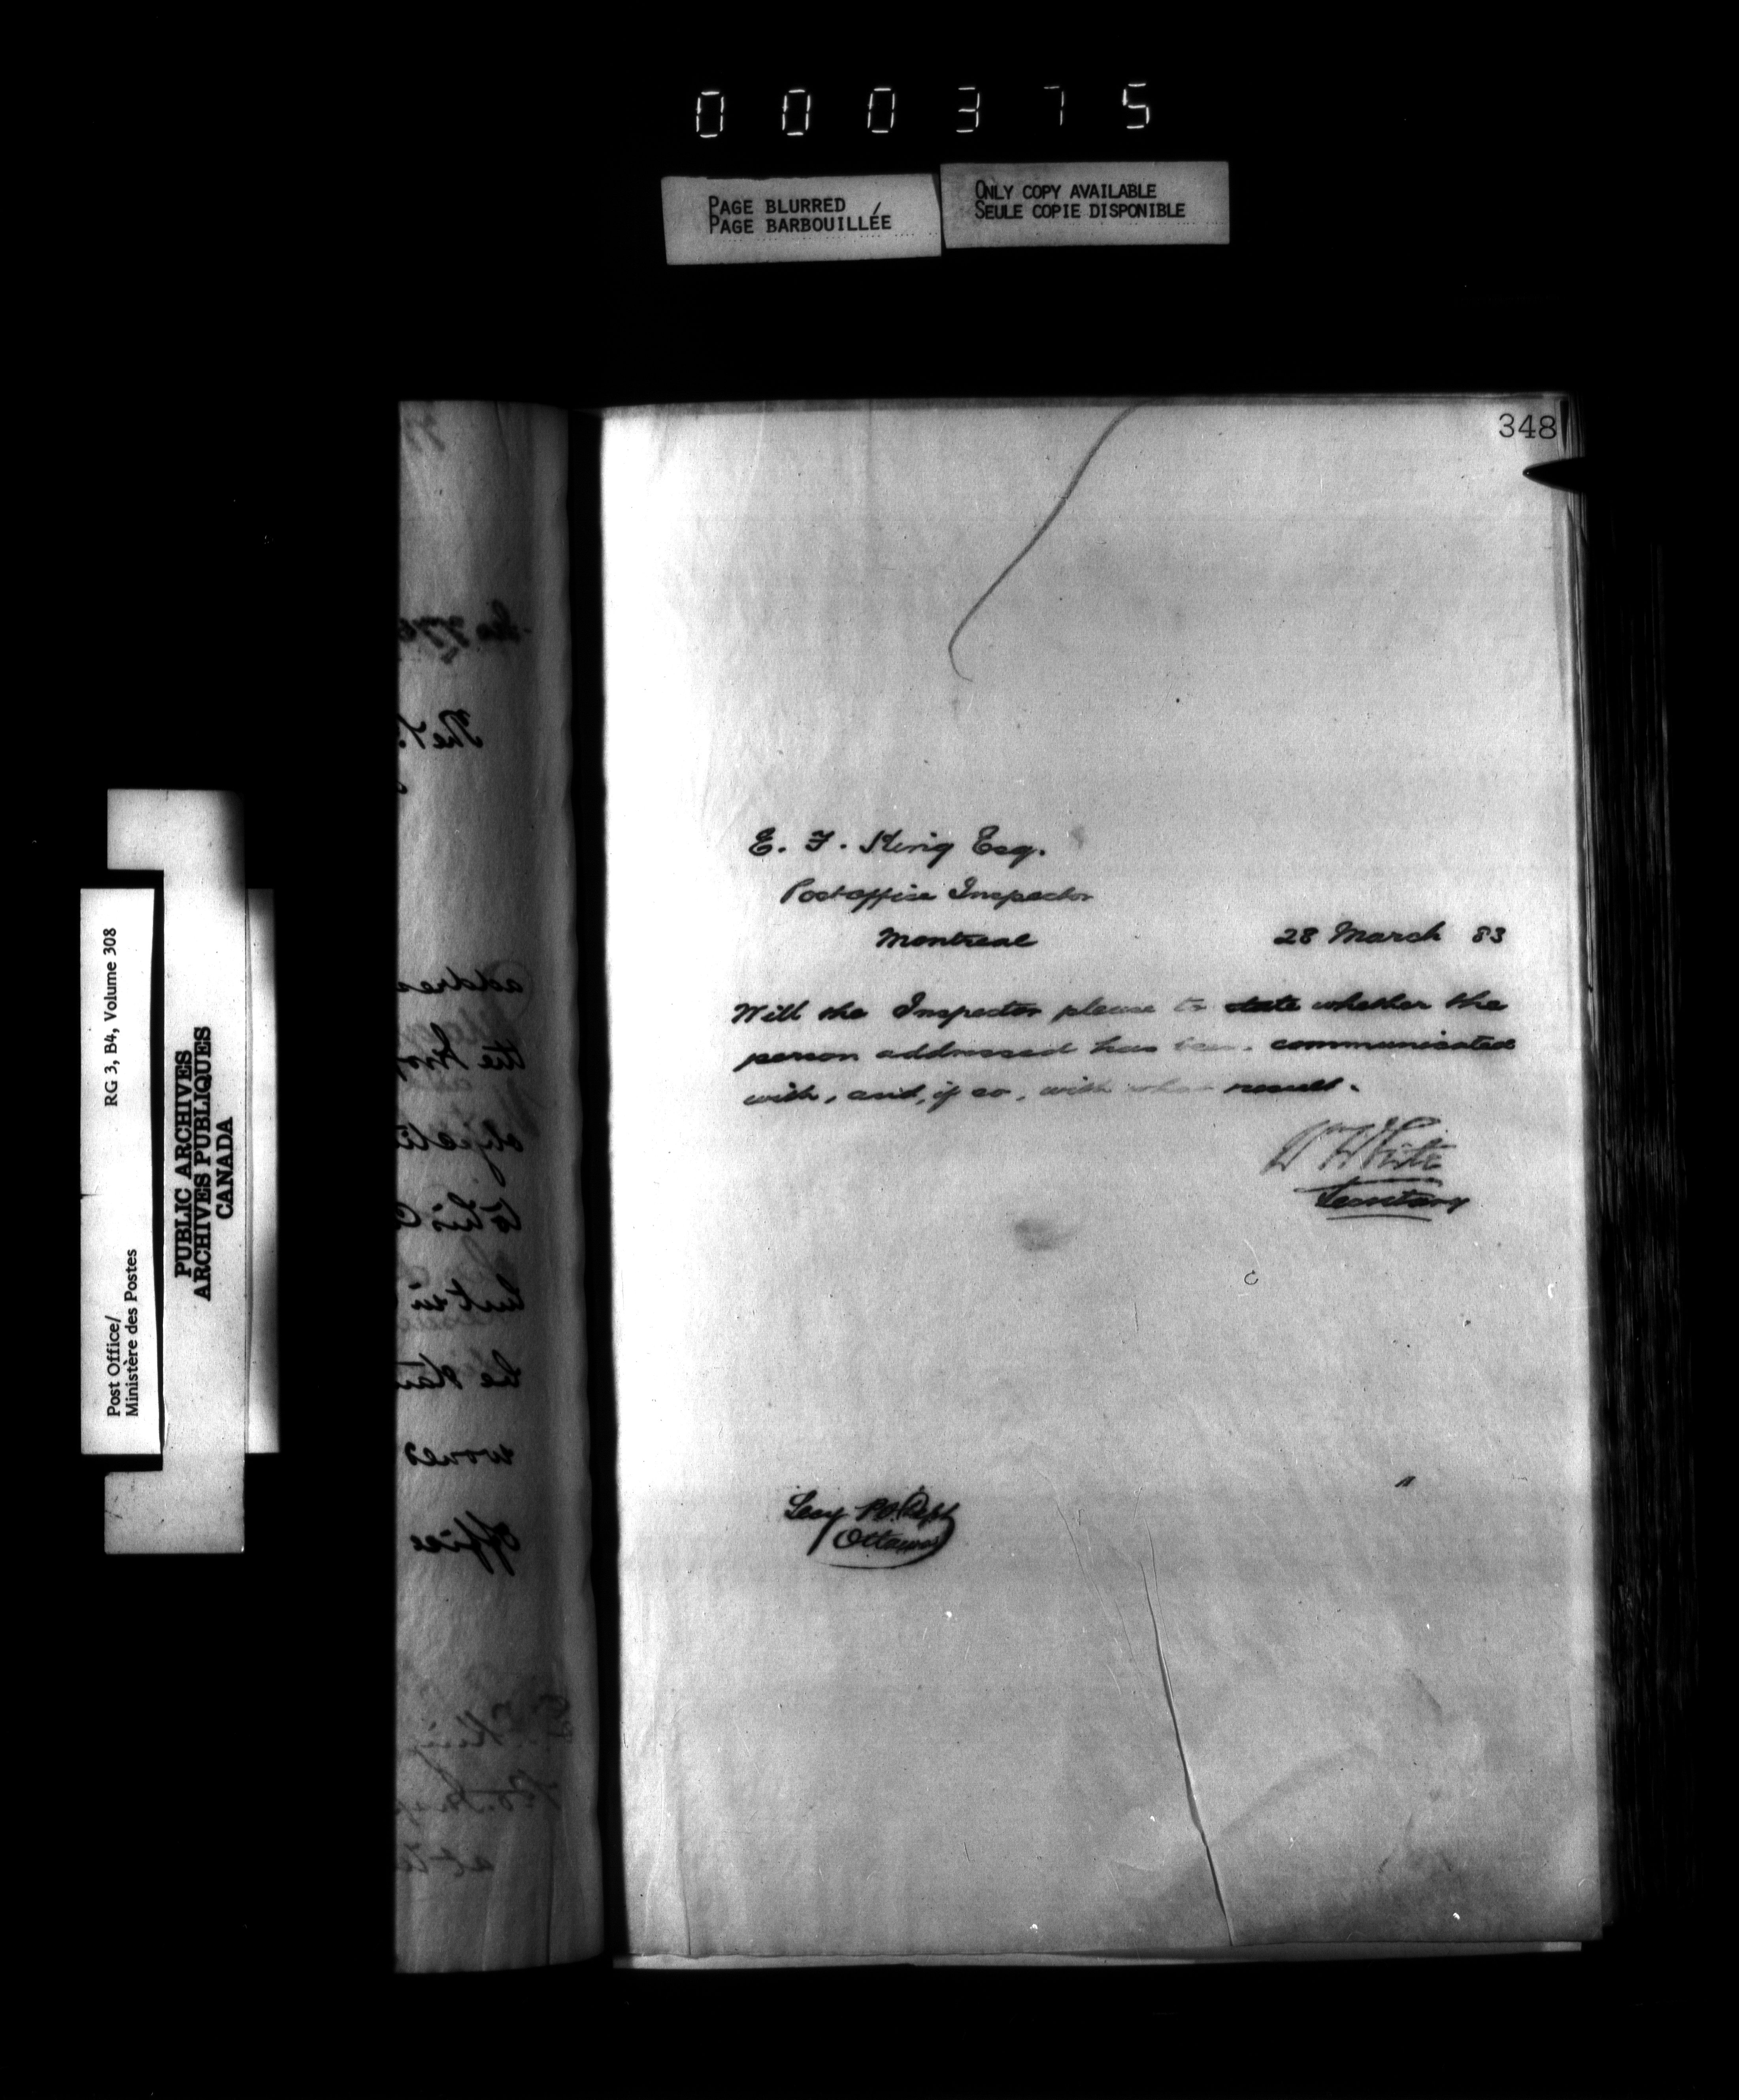 000375
PAGE BLURRED
PAGE BARBOUILLÉE
ONLY COPY AVAILABLE
SEULE COPIE DISPONIBLE
348
E. F. King Esq.
Postoffice Inspector
Montreal
28 March 83
Will the Inspector please to state whether the
person addressed has been communicated
with, and, if so, with what result.
Wm White
Secretary
Secy P.O. Dept
Ottawa
RG 3, B4, Volume 308
Post Office/
Ministère des Postes
PUBLIC ARCHIVES
ARCHIVES PUBLIQUES
CANADA
The
the
office